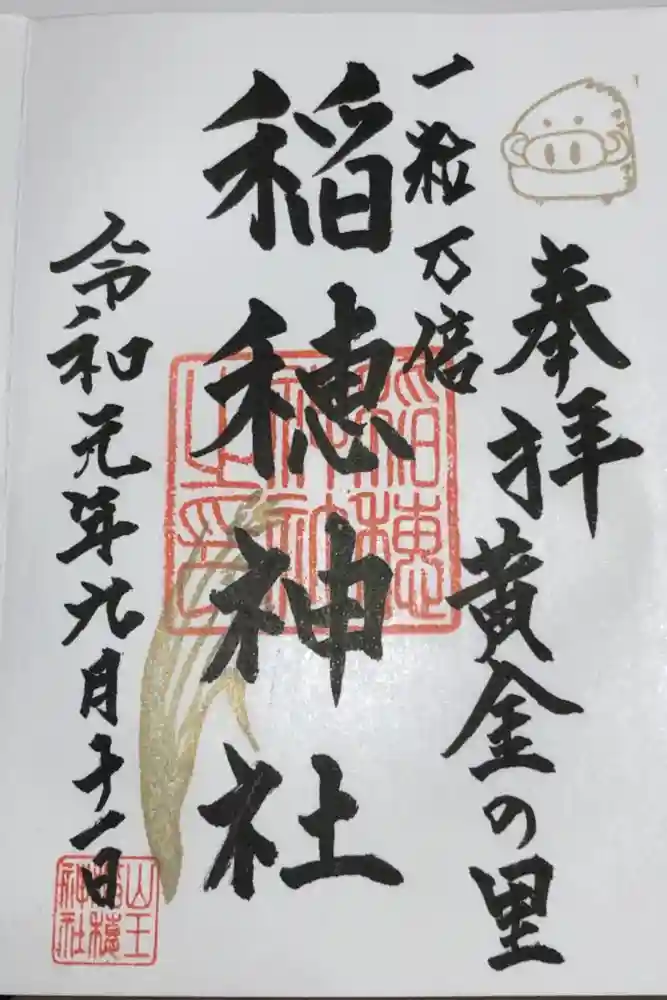 奉拝
黄金の里
一粒万倍
稲穂神社
令和元年九月十一日
稲穂
神社
之印
山王
稲穂
神社